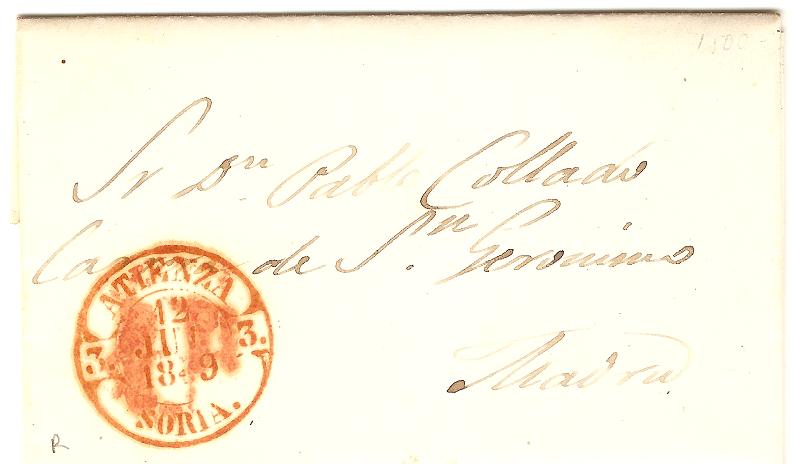 1500-
Sr Dn. Pablo Collado
de Sn. Geronimo
Madrid
ATIENZA
12
1849
3. 3.
SORIA.
R